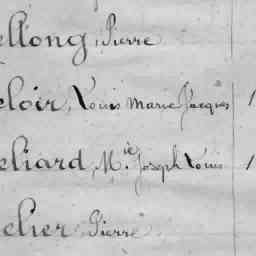 ellong, Pierre
eloir, Louis Marie Jacques 1
eliard, Mie Joseph Louis 1
elier, Pierre